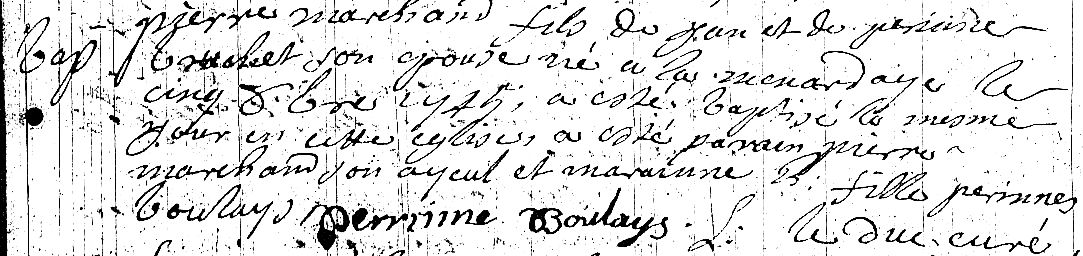 pierre marchand fils de jan et de perinne
Bap brochet son epouse né a la menardaye le
cinq 8.bre 1745, a esté baptisé le mesme
jour en cette eglise, a esté parain pierre
marchand son ayeul et maraine h. fille perinnes
boulays Perrinne Boulays. L. le duc curé